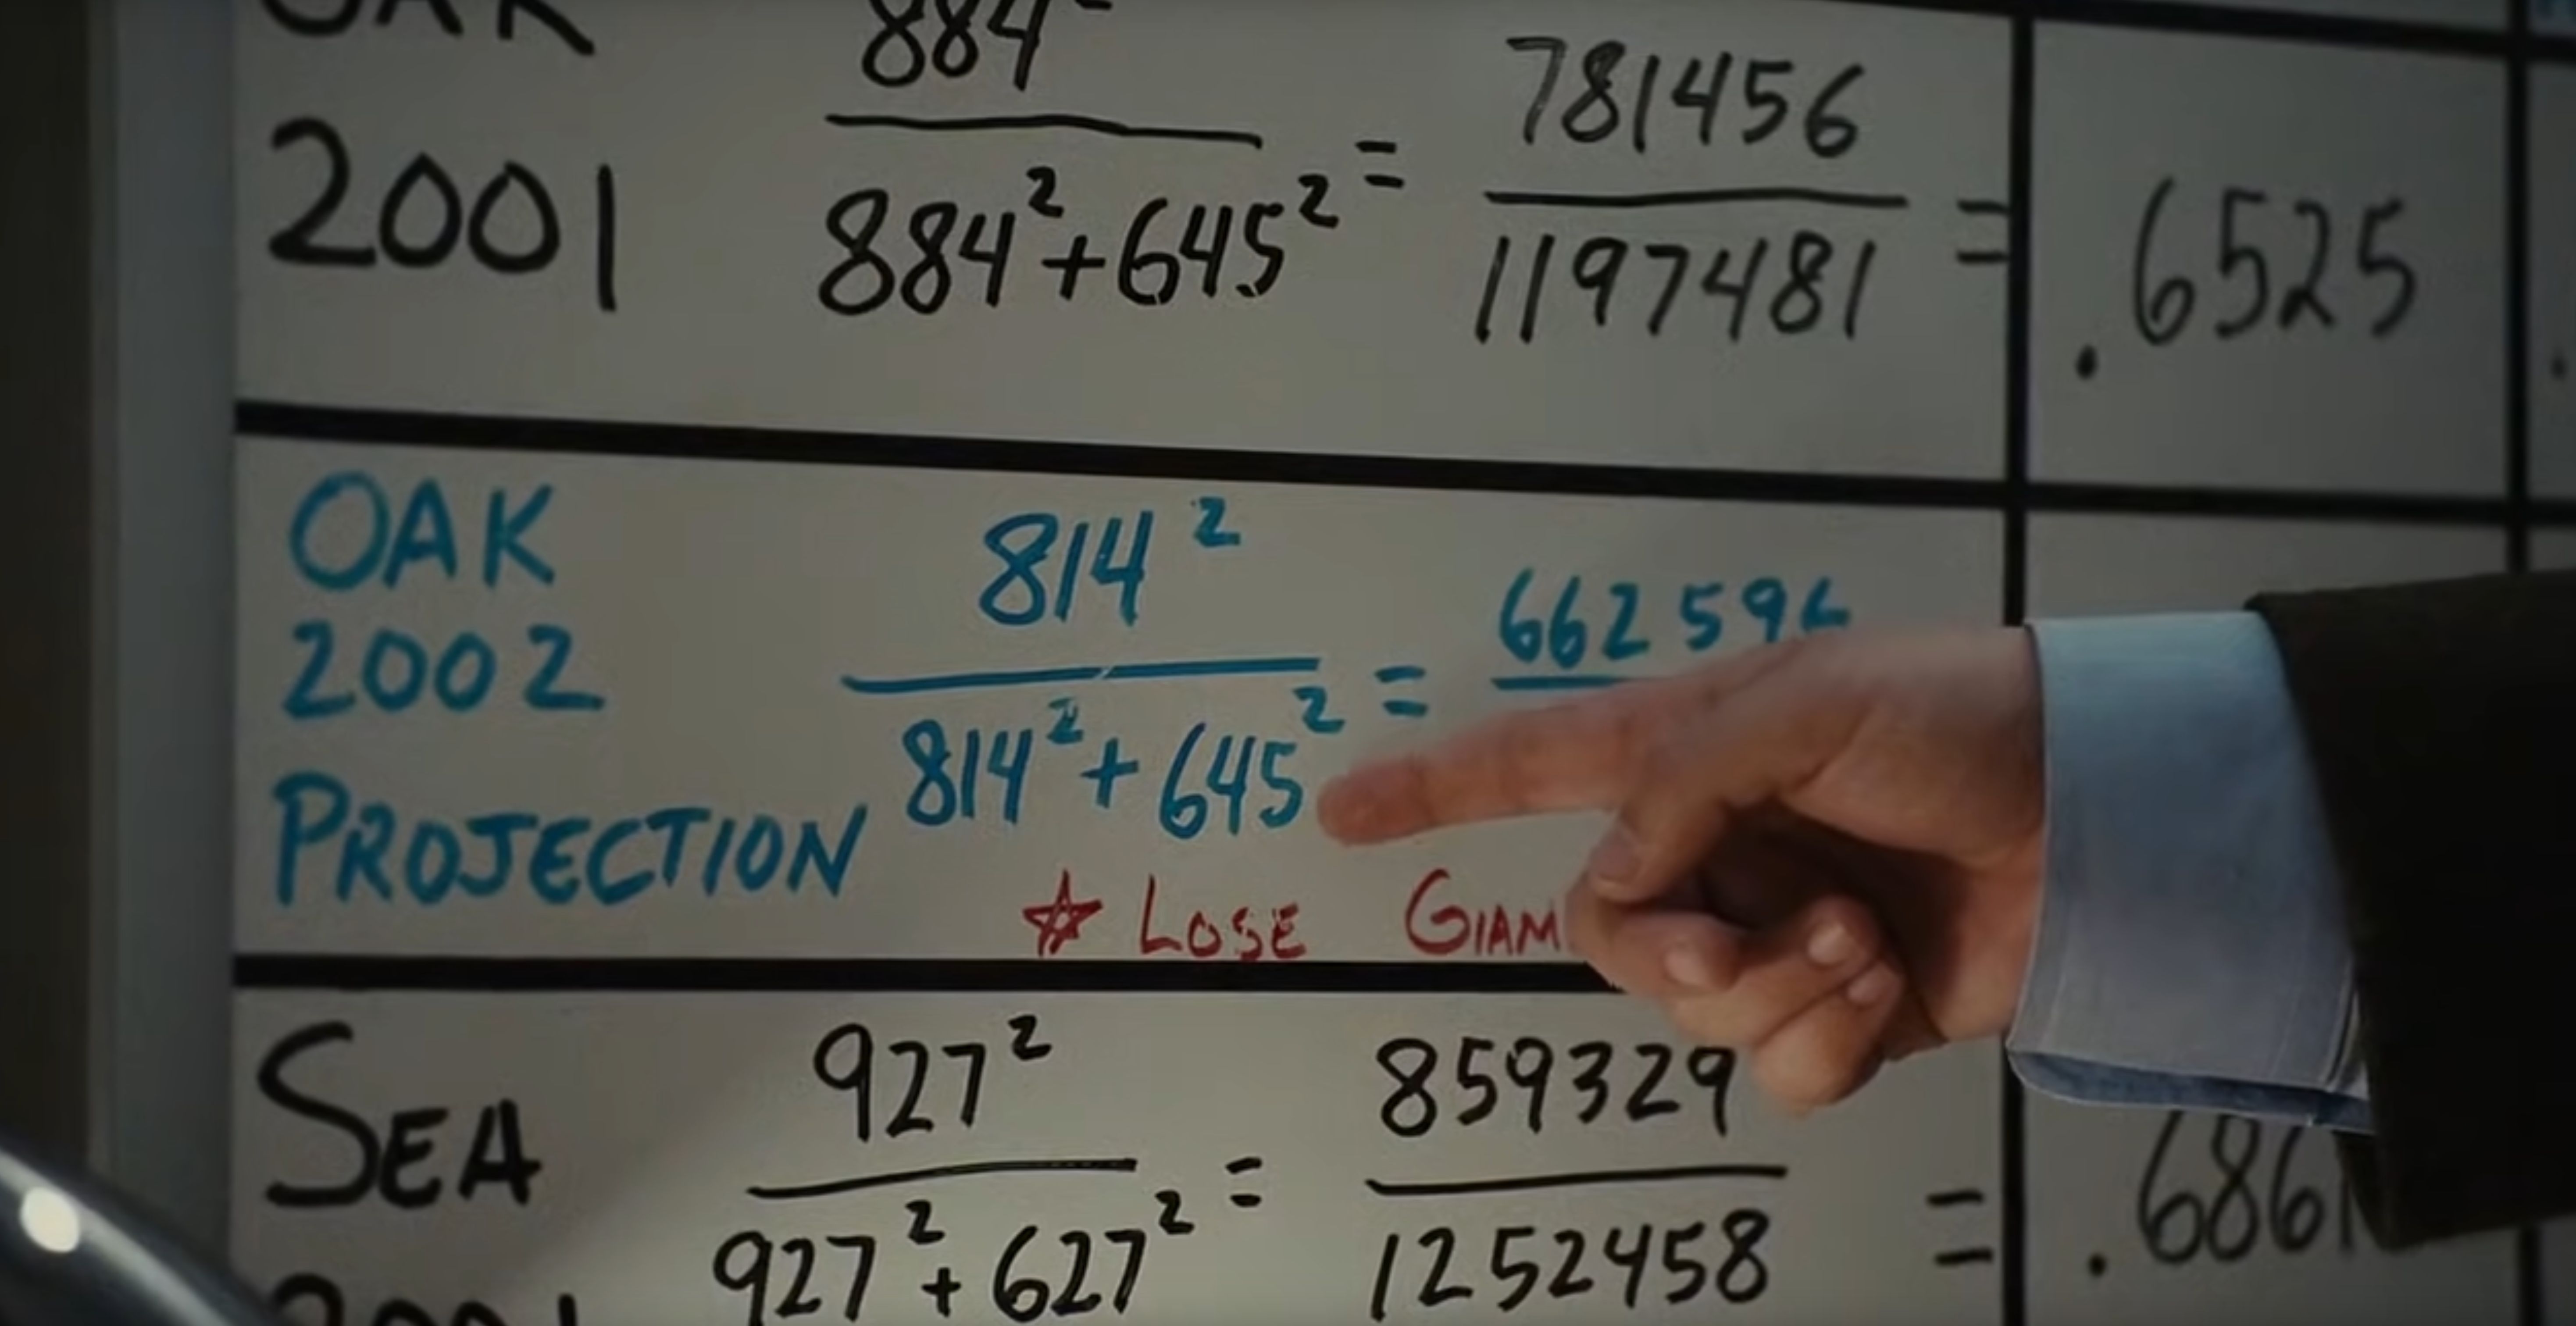 OAK
2001
884²
884² + 645²
=
781456
1197481
=
.6525
OAK
2002
PROJECTION
814²
814² + 645²
=
662596
☆ LOSE GIAM
SEA
2001
927²
927² + 627²
=
859329
1252458
=
.6861